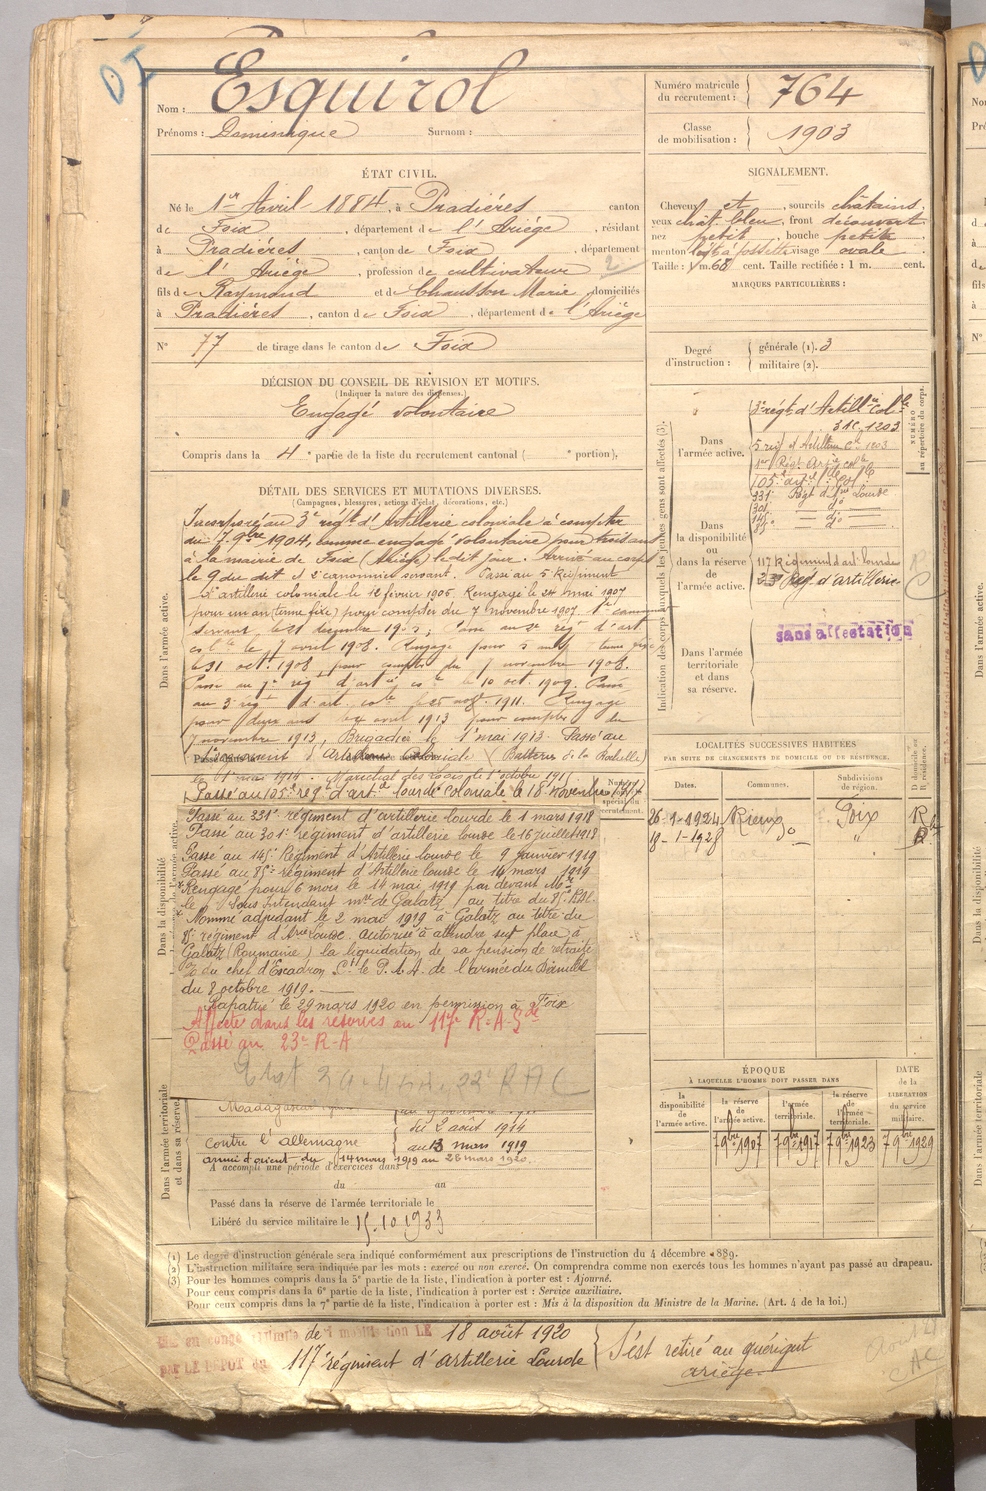 Nom : Esquirol
Prénoms : Dominique Surnom :
Numéro matricule du recrutement : 764
Classe de mobilisation : 1903
ÉTAT CIVIL.
Né le 1er Avril 1884, à Pradières canton
de Foix, département de l'Ariège, résidant
à Pradières, canton de Foix, département
de l'Ariège, profession de cultivateur 2
fils de Raymond et de Chausson Marie, domiciliés
à Pradières, canton de Foix, département de l'Ariège
N° 77 de tirage dans le canton de Foix
SIGNALEMENT.
Cheveux et, sourcils châtains,
yeux chât. bleu, front découvert
nez petit, bouche petite,
menton à fossette visage ovale
Taille : 1 m. 68 cent. Taille rectifiée : 1 m. cent.
MARQUES PARTICULIÈRES :
Degré d'instruction : générale (1). 3
militaire (2).
DÉCISION DU CONSEIL DE RÉVISION ET MOTIFS.
(Indiquer la nature des dispenses.)
Engagé volontaire
Compris dans la 4e partie de la liste du recrutement cantonal ( e portion).
DÉTAIL DES SERVICES ET MUTATIONS DIVERSES.
(Campagnes, blessures, actions d'éclat, décorations, etc.)
Incorporé au 3e régt d'Artillerie coloniale à compter
du 7 9bre 1904, comme engagé volontaire pour trois ans
à la mairie de Foix (Ariège) le dit jour. Arrivé au corps
le 9 du dit et 2e canonnier servant. Passé au 5 Régiment
d'artillerie coloniale le 12 février 1906 Rengagé le 24 mai 1907
pour un an (terme fixe) pour compter du 7 novembre 1907. 1er canonnier
servant le 21 décembre 190
col le 11 avril 1908. Rengagé pour 3 ans
le 31 oct. 1908 pour compter du 7 novembre 1908.
Passé au 1er régt d'art le 10 oct. 1909. Passé
au 3e régt d'art. cole 1911. Rengagé
pour deux ans avril 1913 pour compter du
7 novembre 1913, Brigadier le 1er mai 1913. Passé au
d'Art Coloniale (Batterie de la Rochelle)
le 1er mai 1914. Maréchal des Logis le 1er octobre 191
Passé au 105e régt d'arte lourde Coloniale le 18 Novembre 1917
Passé au 331e régiment d'artillerie lourde le 1 mars 1918
Passé au 301e régiment d'artillerie lourde le 16 juillet 1918
Passé au 145e Régiment d'Artillerie lourde le 9 Janvier 1919
Passé au 85e régiment d'Artillerie lourde le 14 mars 1919
Rengagé pour 6 mois le 14 mai 1919 par devant Mr
le Sous Intendant mre de Galatz / au titre du 85e RAL.
Nommé adjudant le 2 mai 1919 à Galatz au titre du
85e régiment d'Arie Lourde. autorisé à attendre sur place à
Galatz (Roumanie) la liquidation de sa pension de retraite
du chef d'Escadron Ct le P.A.A. de l'armée du Danube
du 8 octobre 1919.
Rapatrié le 29 mars 1920 en permission à Foix
Affecté dans les réserves au 117e R.A.L
Passé au 23e R.A
Dans l'armée active.
Dans la disponibilité
Dans l'armée territoriale et dans sa réserve.
Madagascar
du 2 août 1914
contre l'allemagne au 13 mars 1919
armée d'orient du 14 mars 1919 au 26 mars 1920.
A accompli une période d'exercices dans
du au
Passé dans la réserve de l'armée territoriale le
Libéré du service militaire le 15.10 1933
Indication des corps auxquels les jeunes gens sont affectés (3).
NUMÉRO au répertoire du corps.
Dans l'armée active.
3e régt d'Artillie Colle
31c, 1203
5 régt d'Artillerie Cle 1203
1er Régt Artie colle
105e art lde Col.
331 Régt d'Arie Lourde
301 do
145 do
85 do
Dans la disponibilité ou dans la réserve de l'armée active.
117 Régiment d'art. Lourde
23 Rég. d'artillerie
sans affectation
Dans l'armée territoriale et dans sa réserve.
LOCALITÉS SUCCESSIVES HABITÉES
PAR SUITE DE CHANGEMENTS DE DOMICILE OU DE RÉSIDENCE.
Dates. Communes. Subdivisions de région. D domicile ou R résidence.
26-1-1924 Rieux Foix R
18-1-1928
ÉPOQUE
À LAQUELLE L'HOMME DOIT PASSER DANS
DATE de la LIBÉRATION du service militaire.
la disponibilité de l'armée active. la réserve de l'armée active. l'armée territoriale. la réserve de l'armée territoriale.
7 9bre 1907 7 9bre 1917 7 9bre 1923 7 9bre 1929
(1) Le degré d'instruction générale sera indiqué conformément aux prescriptions de l'instruction du 4 décembre 1889.
(2) L'instruction militaire sera indiquée par les mots : exercé ou non exercé. On comprendra comme non exercés tous les hommes n'ayant pas passé au drapeau.
(3) Pour les hommes compris dans la 5e partie de la liste, l'indication à porter est : Ajourné.
Pour ceux compris dans la 6e partie de la liste, l'indication à porter est : Service auxiliaire.
Pour ceux compris dans la 7e partie de la liste, l'indication à porter est : Mis à la disposition du Ministre de la Marine. (Art. 4 de la loi.)
en congé illimité de démobilisation LE 18 août 1920
PAR LE DÉPOT du 117e régiment d'artillerie Lourde
S'est retiré au quérigut
ariège.